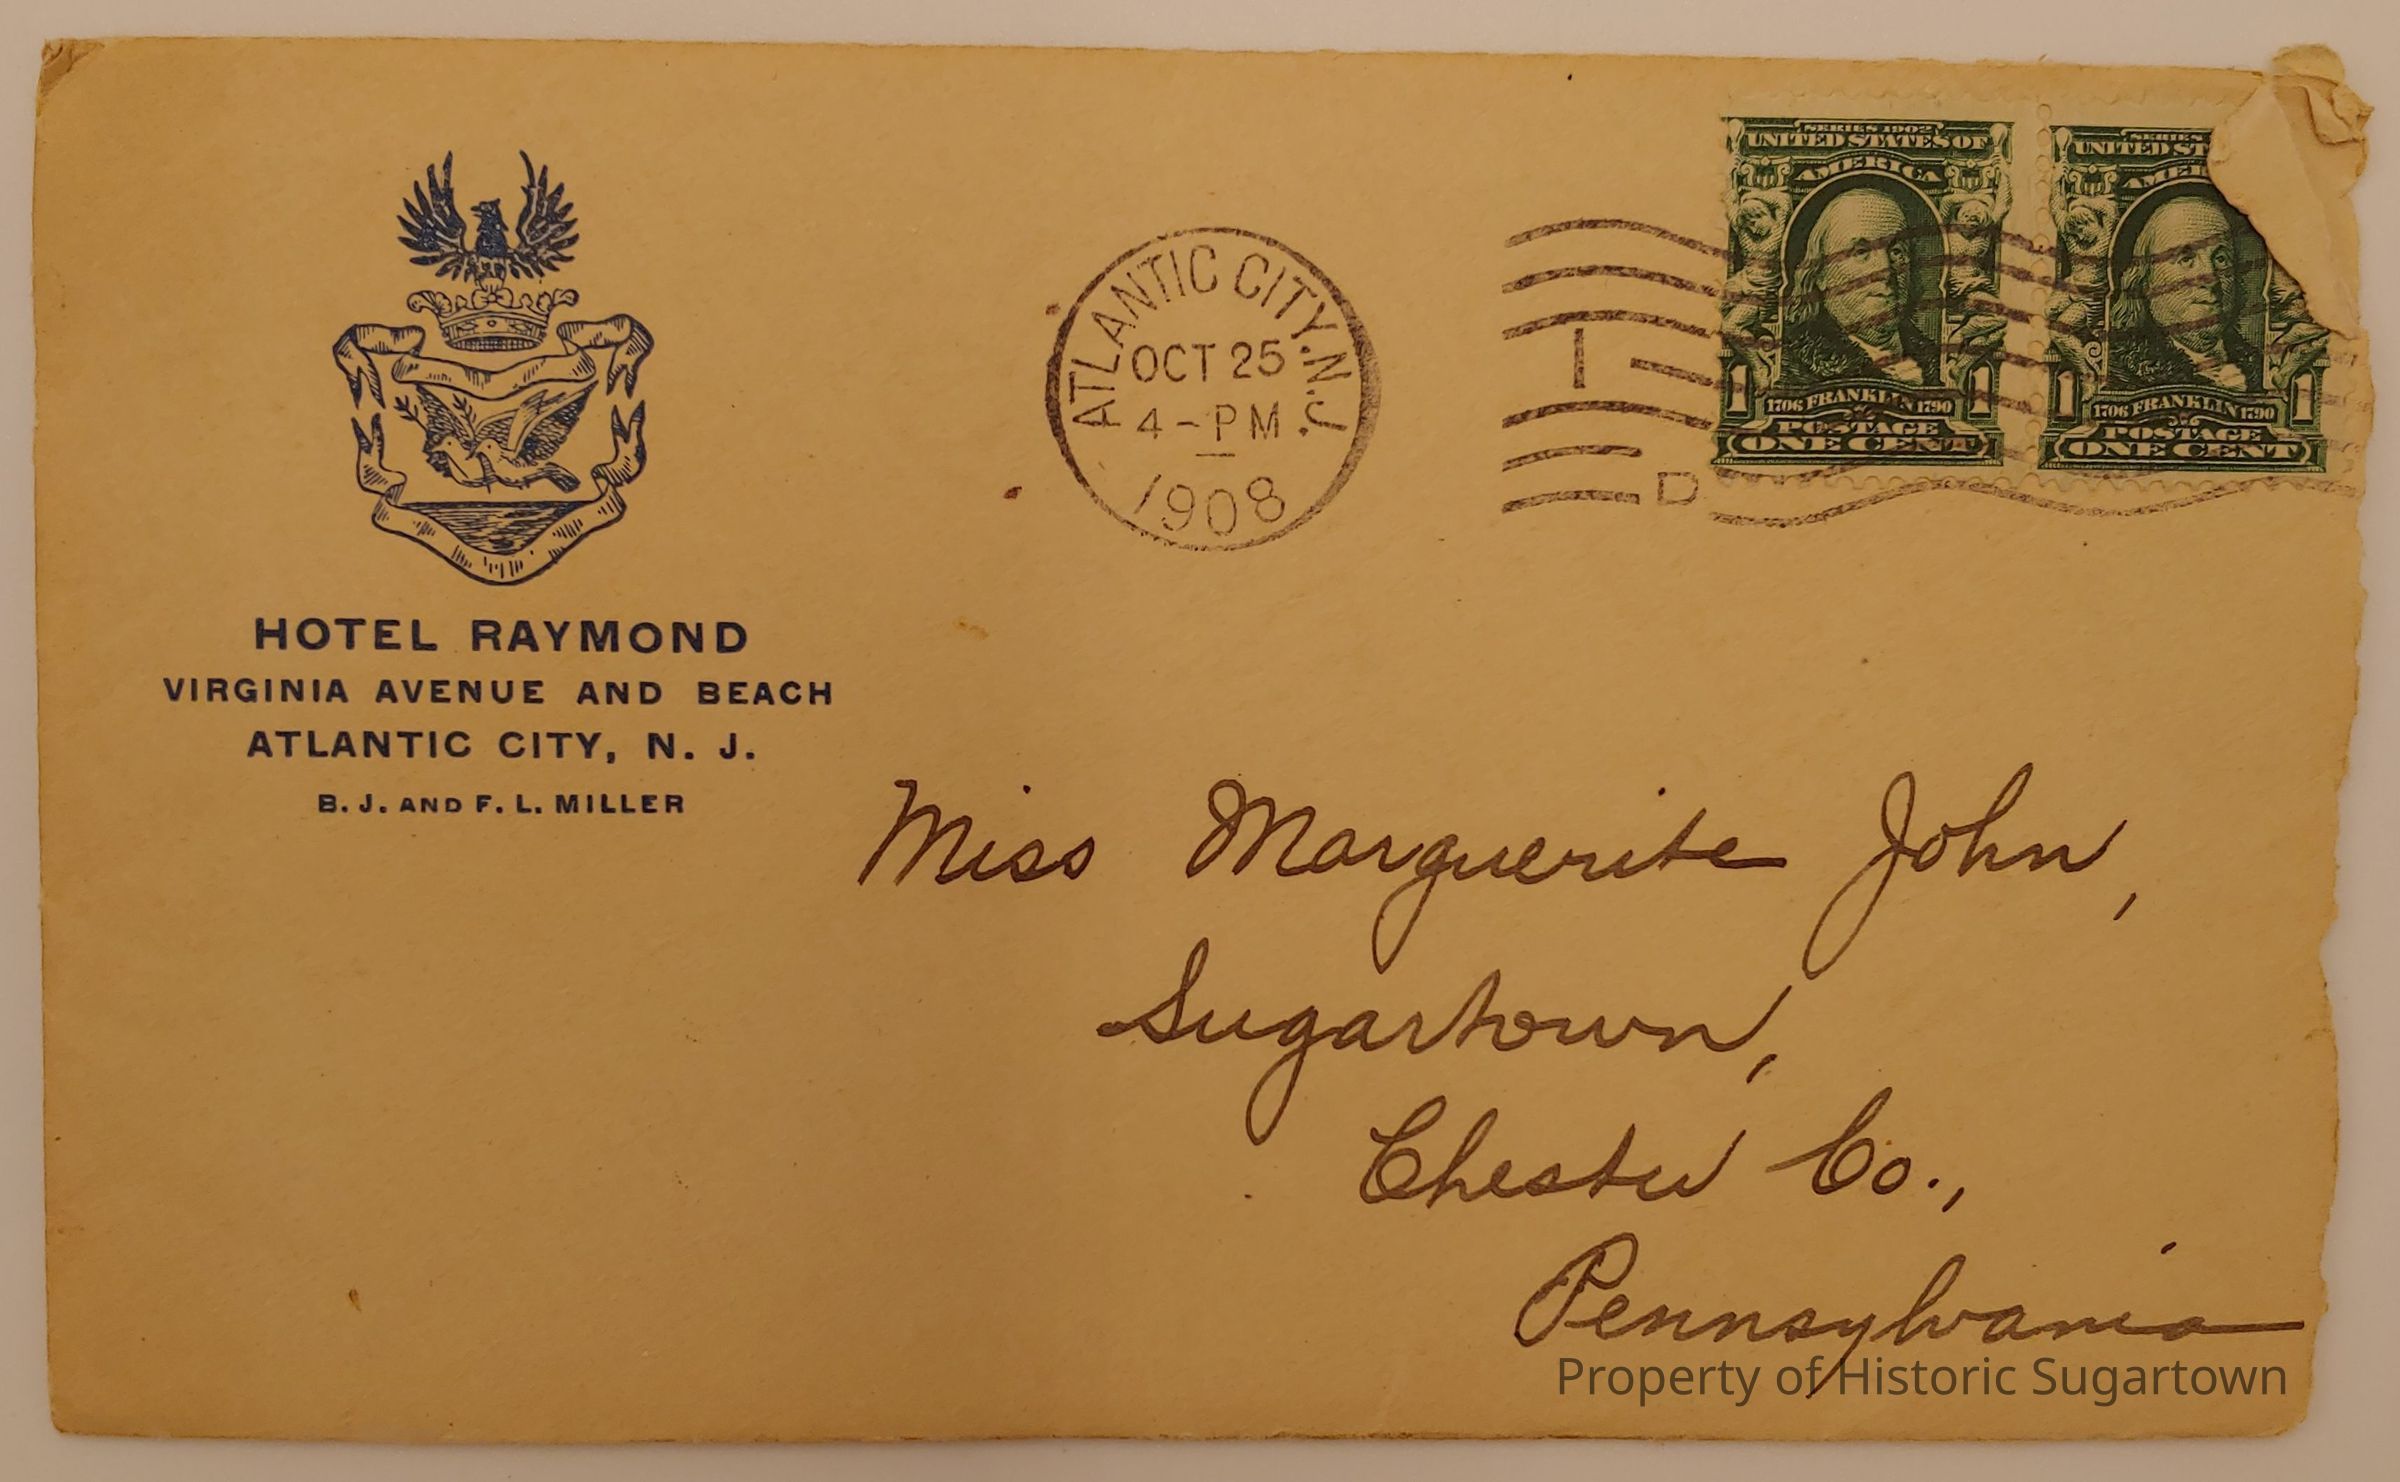 HOTEL RAYMOND
VIRGINIA AVENUE AND BEACH
ATLANTIC CITY, N. J.
B. J. AND F. L. MILLER
ATLANTIC CITY. N.J.
OCT 25
4-PM
1908
I
D
SERIES 1902
UNITED STATES OF
AMERICA
1 1706 FRANKLIN 1790 1
POSTAGE
ONE CENT
SERIES
UNITED ST
AMER
1 1706 FRANKLIN 1790 1
POSTAGE
ONE CENT
Miss Marguerite John,
Sugartown,
Chester Co.,
Pennsylvania
Property of Historic Sugartown